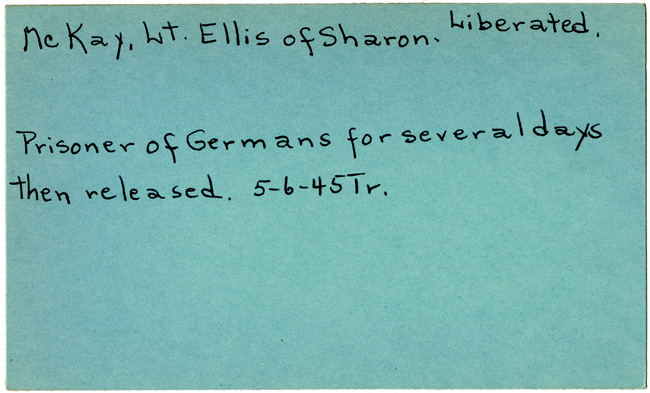 McKay, Lt. Ellis of Sharon. Liberated.
Prisoner of Germans for several days
then released. 5-6-45 Tr.